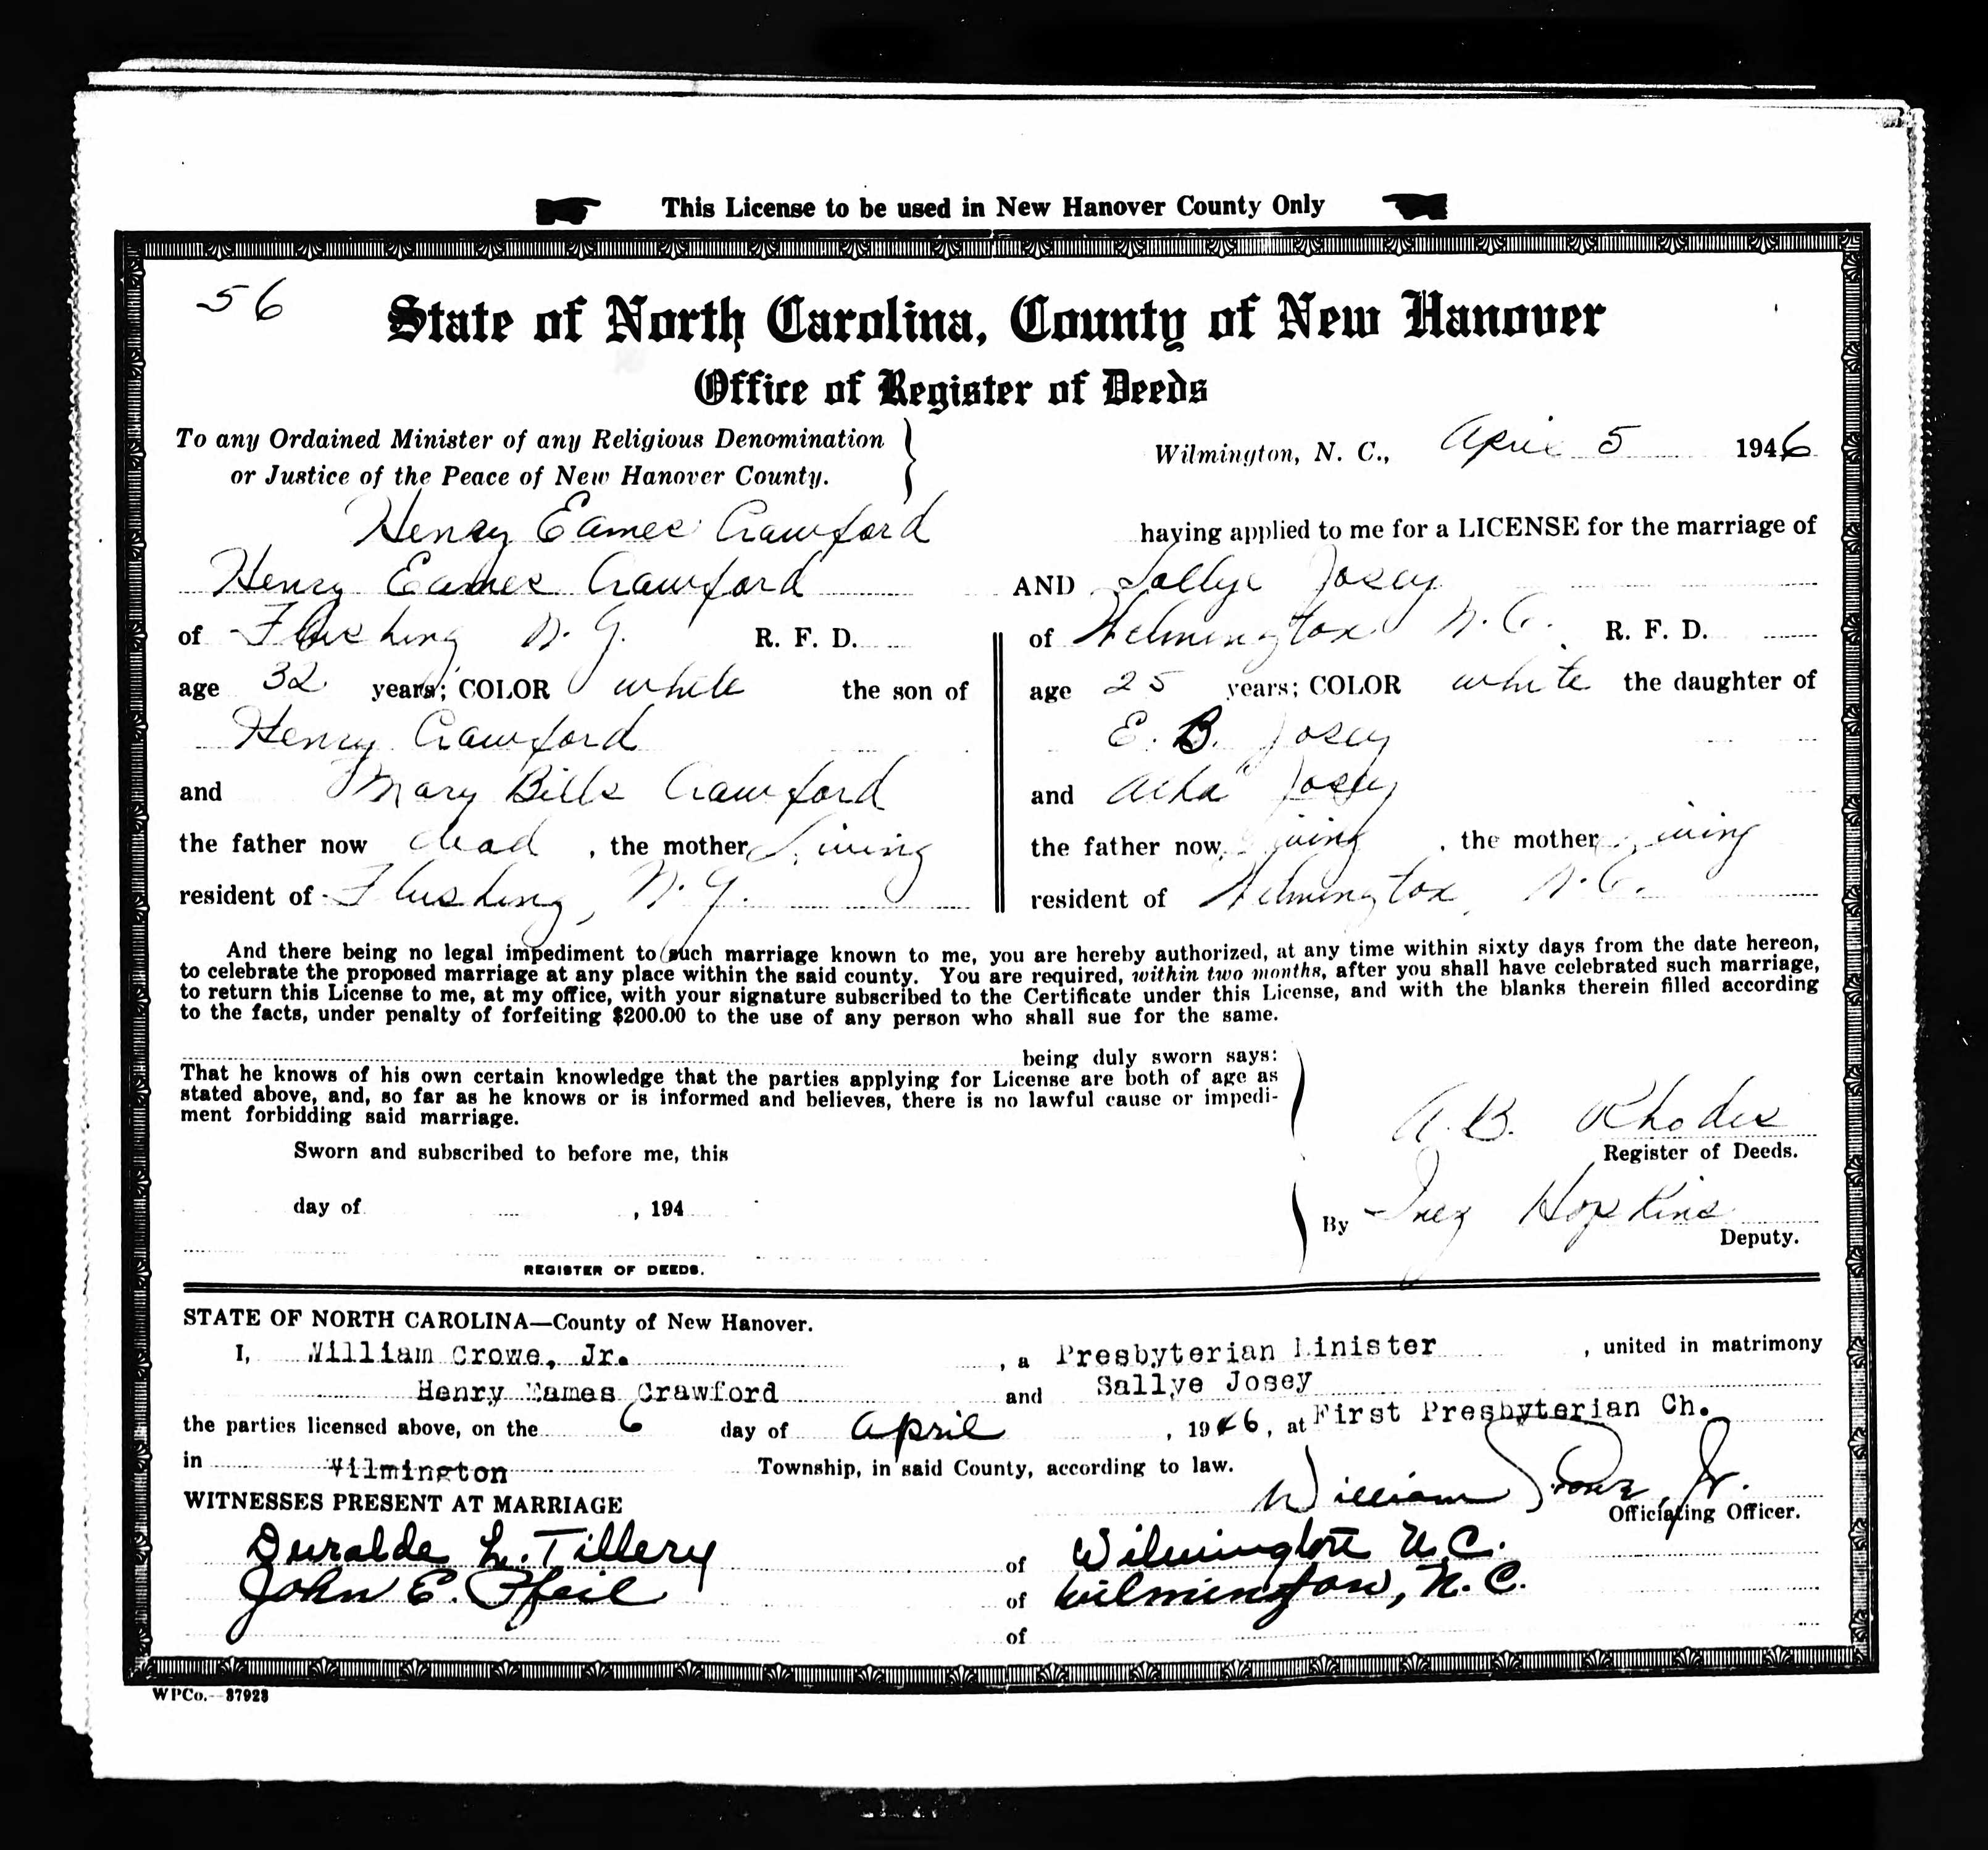 This License to be used in New Hanover County Only
56
State of North Carolina, County of New Hanover
Office of Register of Deeds
To any Ordained Minister of any Religious Denomination
or Justice of the Peace of New Hanover County.
Wilmington, N. C., April 5 1946
Henry Eames Crawford having applied to me for a LICENSE for the marriage of
Henry Eames Crawford AND Sallye Josey
of Flushing N.Y. R. F. D.
of Wilmington N.C. R. F. D.
age 32 years; COLOR white the son of
age 25 years; COLOR white the daughter of
Henry Crawford
E. B. Josey
and Mary Bills Crawford
and Josey
the father now dead, the mother Living
the father now Living, the mother Living
resident of Flushing, N.Y.
resident of Wilmington, N.C.
And there being no legal impediment to such marriage known to me, you are hereby authorized, at any time within sixty days from the date hereon,
to celebrate the proposed marriage at any place within the said county. You are required, within two months, after you shall have celebrated such marriage,
to return this License to me, at my office, with your signature subscribed to the Certificate under this License, and with the blanks therein filled according
to the facts, under penalty of forfeiting $200.00 to the use of any person who shall sue for the same.
being duly sworn says:
That he knows of his own certain knowledge that the parties applying for License are both of age as
stated above, and, so far as he knows or is informed and believes, there is no lawful cause or impedi-
ment forbidding said marriage.
Sworn and subscribed to before me, this
day of , 194
REGISTER OF DEEDS.
A. B. Rhodes
Register of Deeds.
By Inez Hopkins
Deputy.
STATE OF NORTH CAROLINA—County of New Hanover.
I, William Crowe, Jr. , a Presbyterian Minister , united in matrimony
Henry Eames Crawford and Sallye Josey
the parties licensed above, on the 6 day of April , 1946, at First Presbyterian Ch.
in Wilmington Township, in said County, according to law.
William Crowe, Jr.
WITNESSES PRESENT AT MARRIAGE
Officiating Officer.
Duralde L. Tillery of Wilmington N.C.
John E. Pfeil of Wilmington, N.C.
of
WPCo.—37923